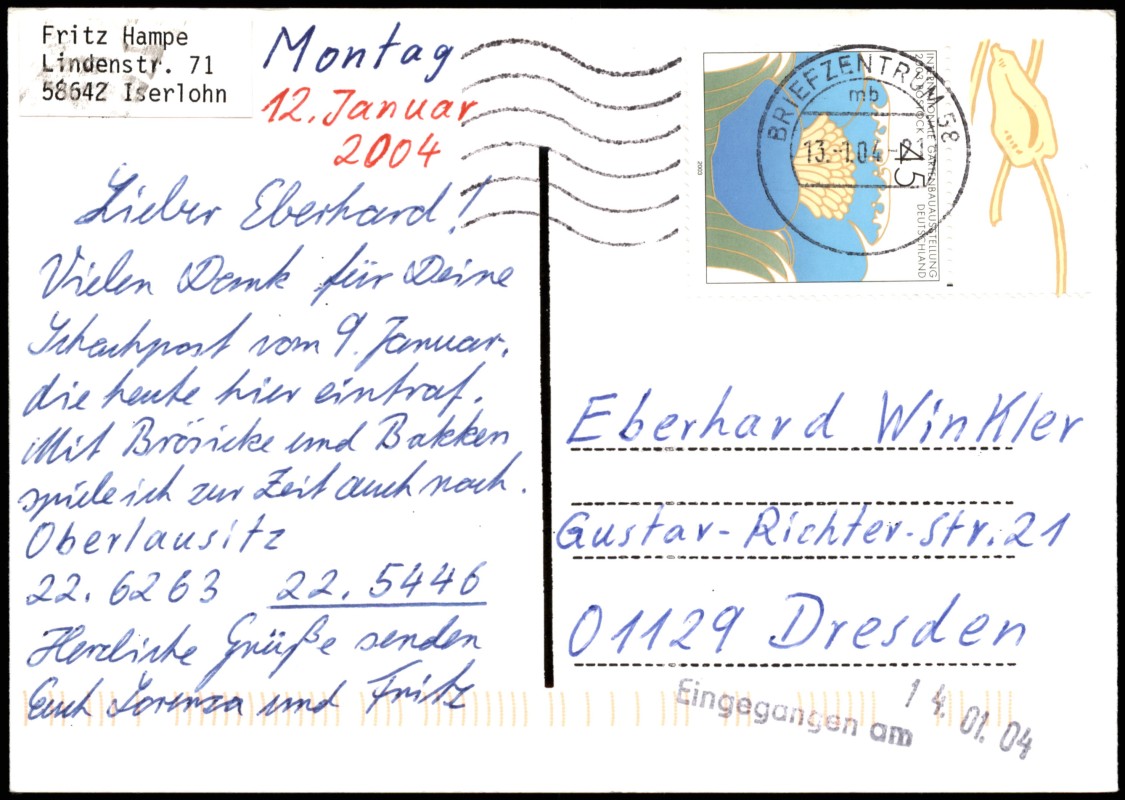 Fritz Hampe
Lindenstr. 71
58642 Iserlohn
Montag
12. Januar
2004
Lieber Eberhard!
Vielen Dank für Deine
Schachpost vom 9. Januar,
die heute hier eintraf.
Mit Brösicke und Bakken
spiele ich zur Zeit auch noch.
Oberlausitz
22. 6263 22. 5446
Herzliche Grüße senden
Euch Lorenza und Fritz
BRIEFZENTRUM 58
mb
13.-1.04-
45
INTERNATIONALE GARTENBAUAUSSTELLUNG
2003 ROSTOCK
DEUTSCHLAND
2003
Eberhard Winkler
Gustav-Richter-Str. 21
01129 Dresden
Eingegangen am 14. 01. 04